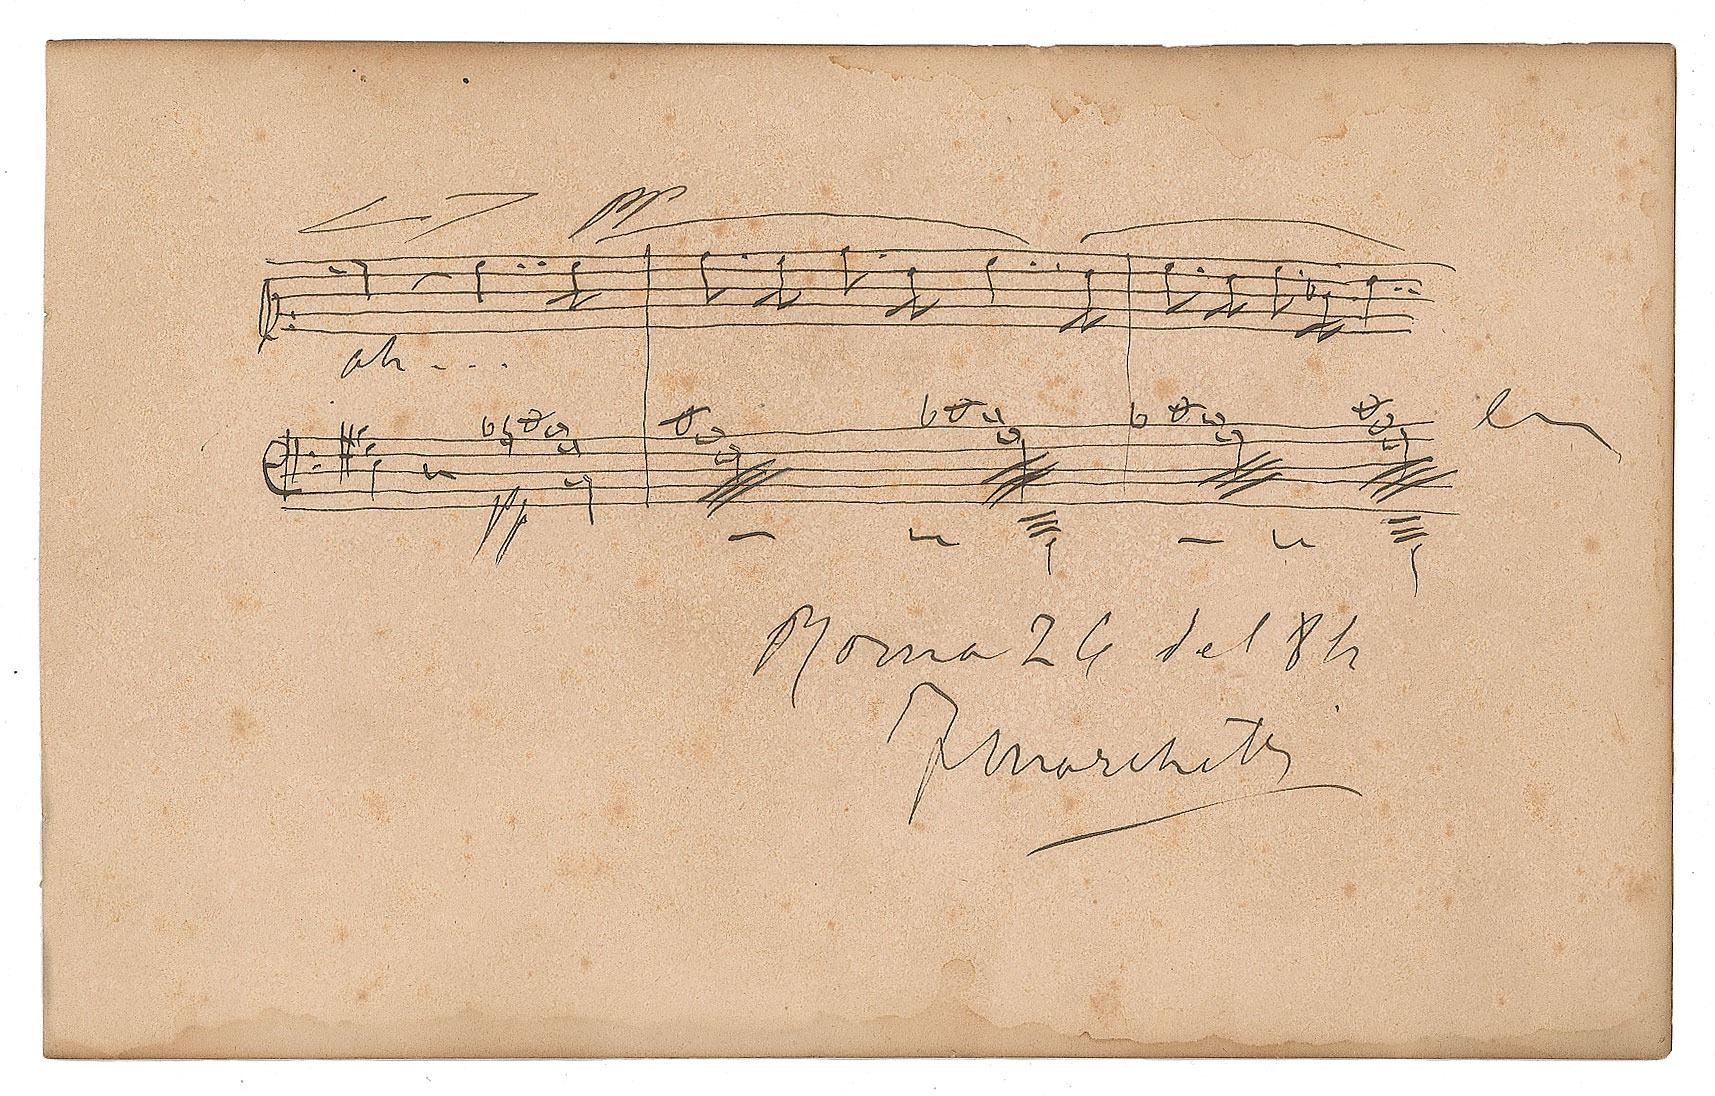 pp
ah . . .
pp
Roma 24 del 84
F Marchetti